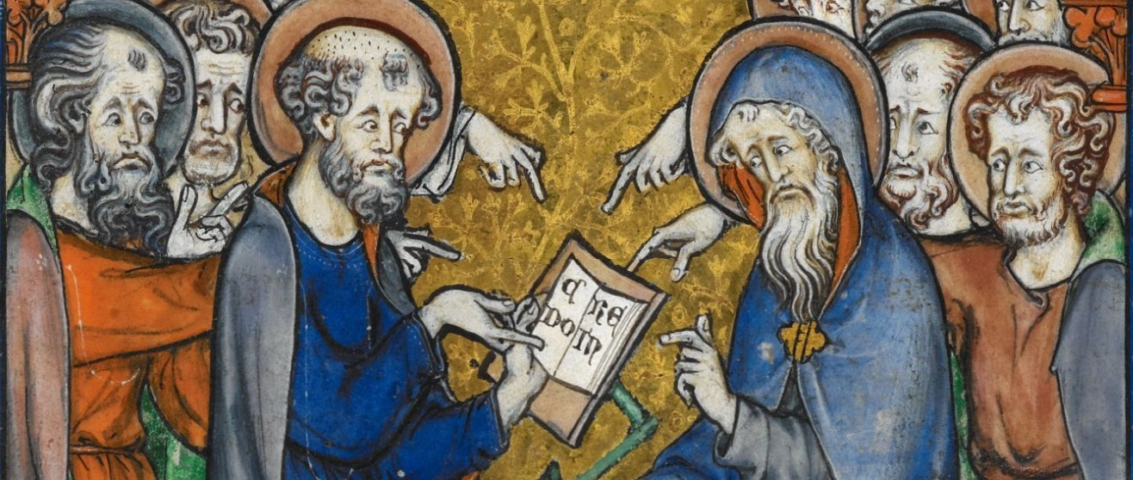 C RE
DO IN